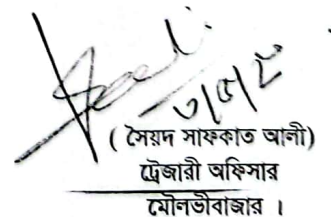 ( সৈয়দ সাফকাত আলী)
ট্রেজারী অফিসার
মৌলভীবাজার ।